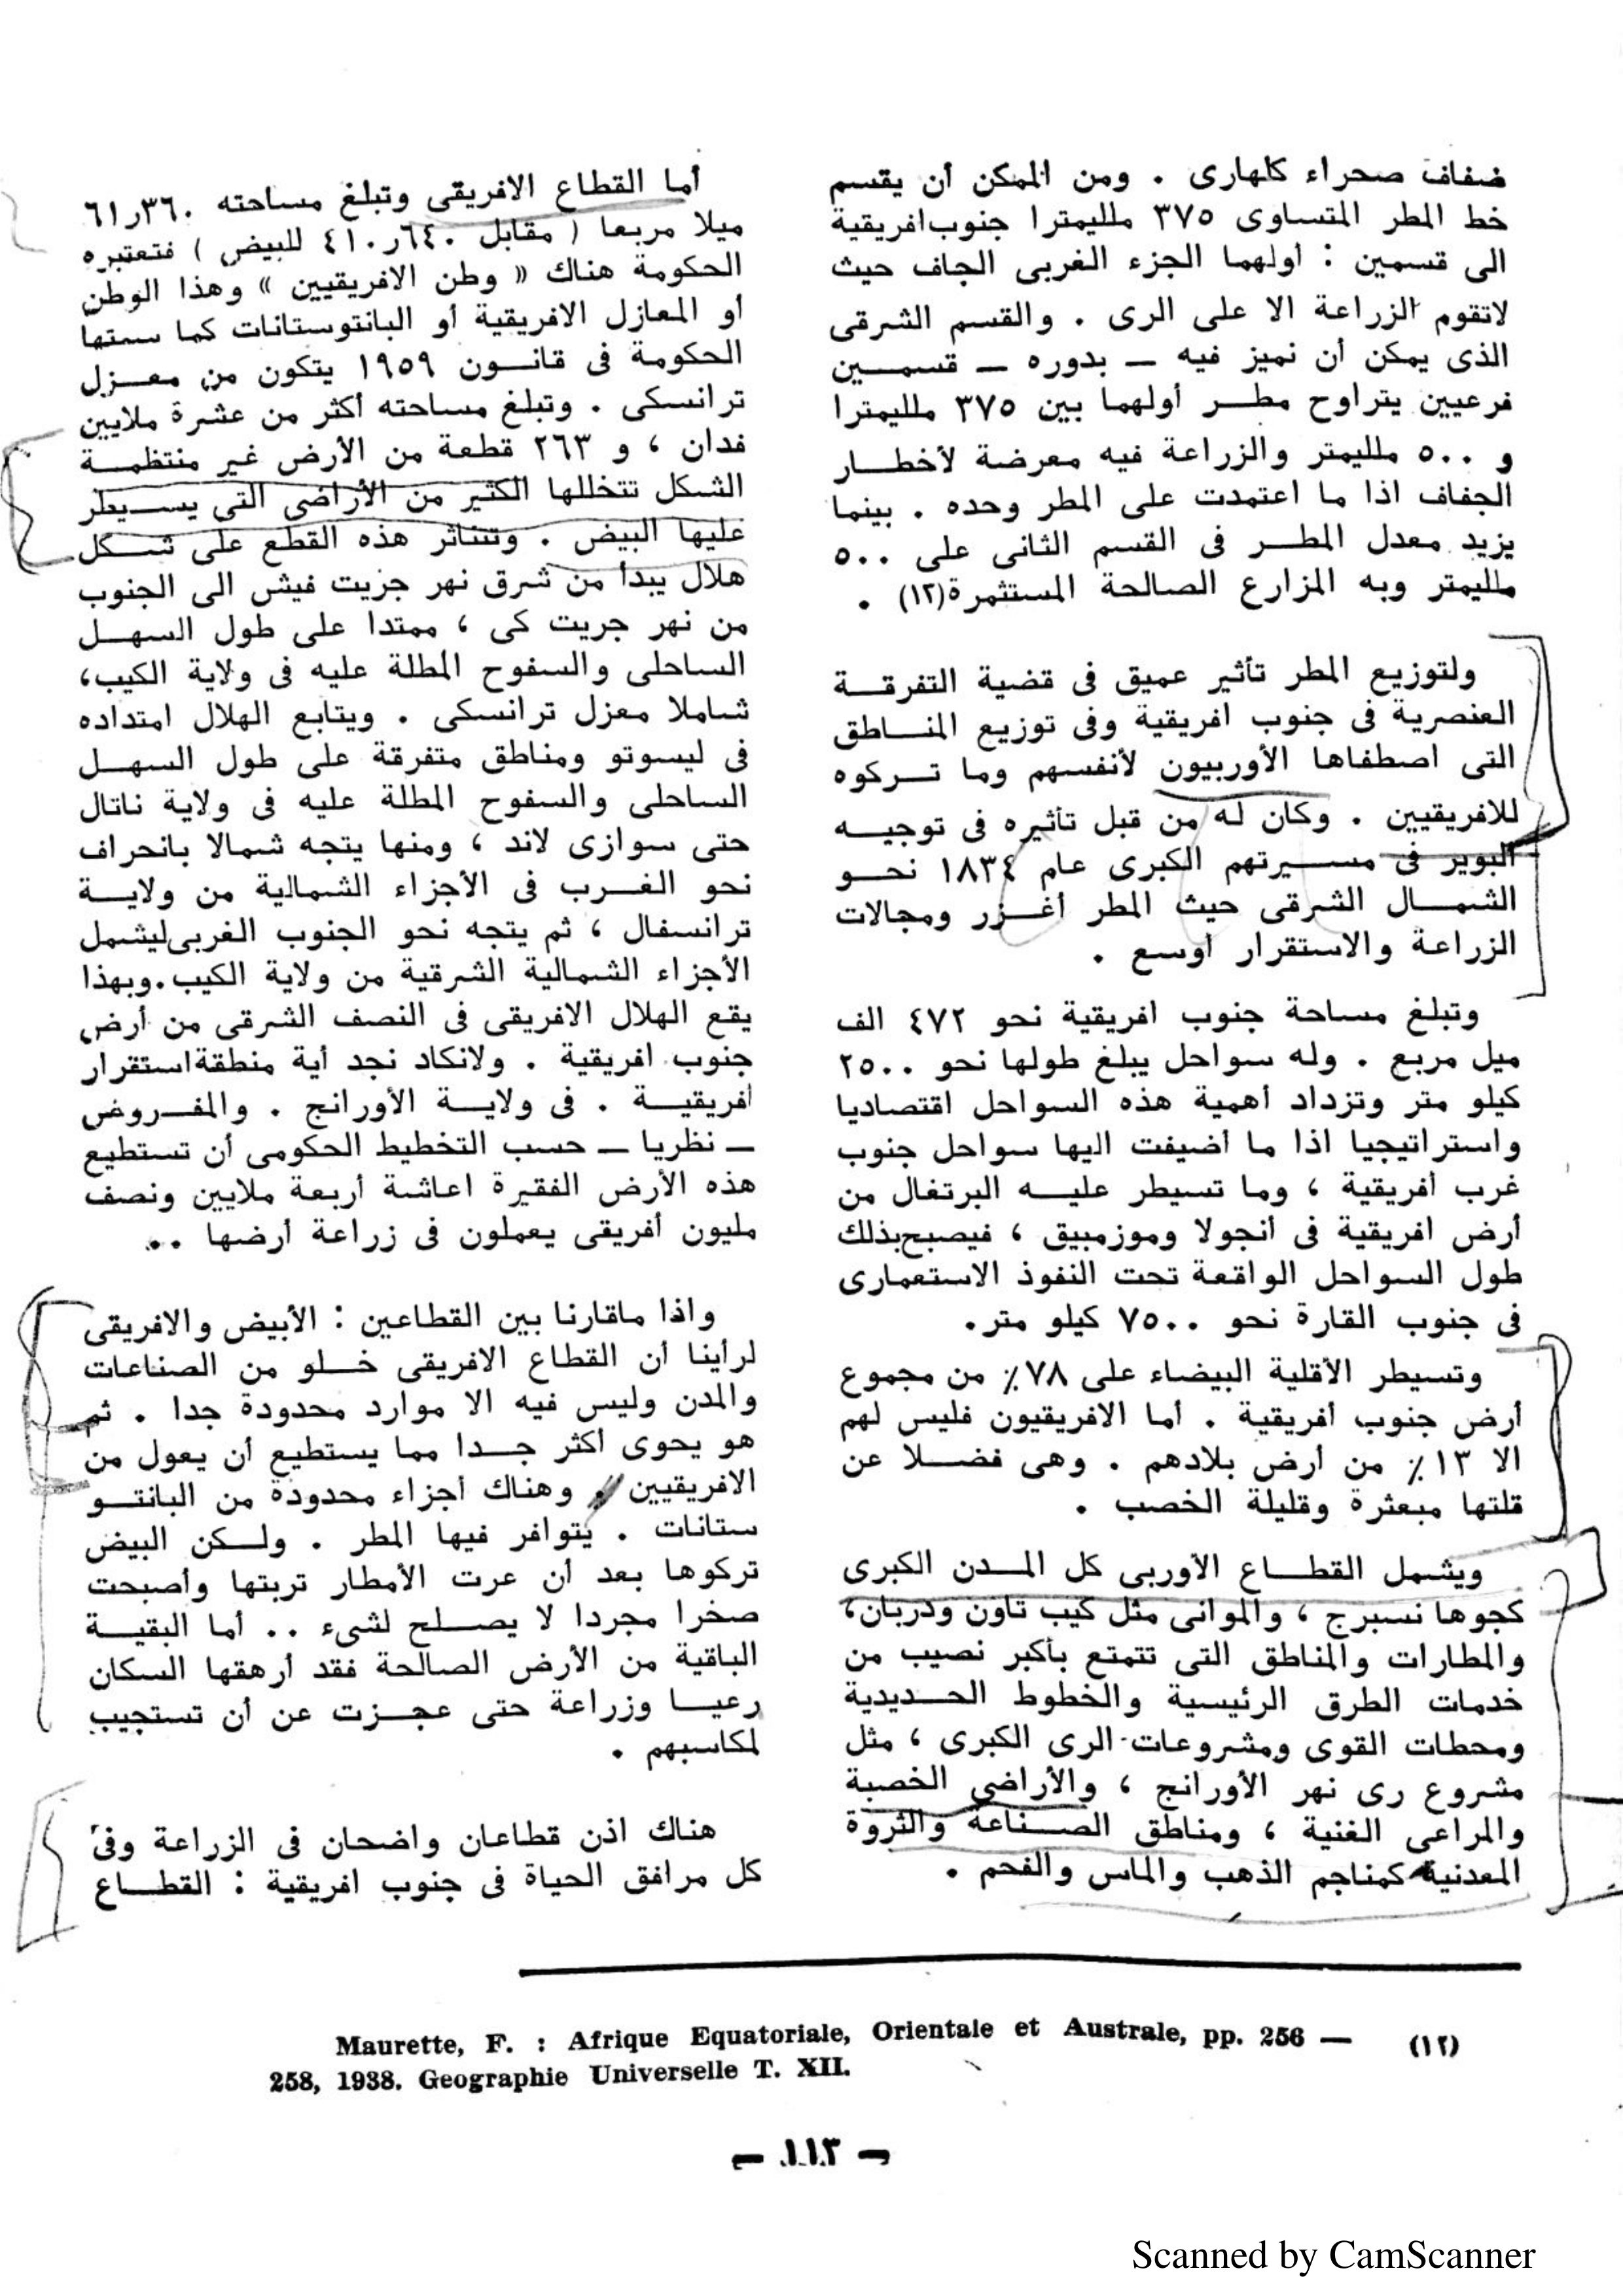 ضفاف صحراء كلهارى . ومن الممكن أن يقسم
خط المطر المتساوى ٣٧٥ ملليمترا جنوب افريقية
الى قسمين : أولهما الجزء الغربى الجاف حيث
لاتقوم الزراعة الا على الرى . والقسم الشرقى
الذى يمكن أن نميز فيه ــ بدوره ــ قسمين
فرعيين يتراوح مطر أولهما بين ٣٧٥ ملليمترا
و ٥٠٠ ملليمتر والزراعة فيه معرضة لأخطار
الجفاف اذا ما اعتمدت على المطر وحده . بينما
يزيد معدل المطر فى القسم الثانى على ٥٠٠
ملليمتر وبه المزارع الصالحة المستثمرة(١٢) .
ولتوزيع المطر تأثير عميق فى قضية التفرقة
العنصرية فى جنوب افريقية وفى توزيع المناطق
التى اصطفاها الأوربيون لأنفسهم وما تركوه
للافريقيين . وكان له من قبل تأثيره فى توجيه
البوير فى مسيرتهم الكبرى عام ١٨٣٤ نحو
الشمال الشرقى حيث المطر أغزر ومجالات
الزراعة والاستقرار أوسع .
وتبلغ مساحة جنوب افريقية نحو ٤٧٢ الف
ميل مربع . وله سواحل يبلغ طولها نحو ٢٥٠٠
كيلو متر وتزداد أهمية هذه السواحل اقتصاديا
واستراتيجيا اذا ما أضيفت اليها سواحل جنوب
غرب أفريقية ، وما تسيطر عليه البرتغال من
أرض افريقية فى أنجولا وموزمبيق ، فيصبح بذلك
طول السواحل الواقعة تحت النفوذ الاستعمارى
فى جنوب القارة نحو ٧٥٠٠ كيلو متر.
وتسيطر الأقلية البيضاء على ٧٨٪ من مجموع
أرض جنوب أفريقية . أما الافريقيون فليس لهم
الا ١٣٪ من أرض بلادهم . وهى فضلا عن
قلتها مبعثرة وقليلة الخصب .
ويشمل القطاع الأوربى كل المدن الكبرى
كجوها نسبرج ، والموانى مثل كيب تاون ودربان،
والمطارات والمناطق التى تتمتع بأكبر نصيب من
خدمات الطرق الرئيسية والخطوط الحديدية
ومحطات القوى ومشروعات الرى الكبرى ، مثل
مشروع رى نهر الأورانج ، والأراضى الخصبة
والمراعى الغنية ، ومناطق الصناعة والثروة
المعدنية كمناجم الذهب والماس والفحم .
أما القطاع الافريقى وتبلغ مساحته ٦١٫٣٦٠
ميلا مربعا ( مقابل ٤١٠٫٦٤٠ للبيض ) فتعتبره
الحكومة هناك « وطن الافريقيين » وهذا الوطن
أو المعازل الافريقية أو البانتوستانات كما سمتها
الحكومة فى قانون ١٩٥٩ يتكون من معزل
ترانسكى . وتبلغ مساحته أكثر من عشرة ملايين
فدان ، و ٢٦٣ قطعة من الأرض غير منتظمة
الشكل تتخللها الكثير من الأراضى التى يسيطر
عليها البيض . وتتناثر هذه القطع على شكل
هلال يبدأ من شرق نهر جزيت فيش الى الجنوب
من نهر جريت كى ، ممتدا على طول السهل
الساحلى والسفوح المطلة عليه فى ولاية الكيب،
شاملا معزل ترانسكى . ويتابع الهلال امتداده
فى ليسوتو ومناطق متفرقة على طول السهل
الساحلى والسفوح المطلة عليه فى ولاية ناتال
حتى سوازى لاند ، ومنها يتجه شمالا بانحراف
نحو الغرب فى الأجزاء الشمالية من ولاية
ترانسفال ، ثم يتجه نحو الجنوب الغربى ليشمل
الأجزاء الشمالية الشرقية من ولاية الكيب.وبهذا
يقع الهلال الافريقى فى النصف الشرقى من أرض
جنوب افريقية . ولانكاد نجد أية منطقة استقرار
افريقية . فى ولاية الأورانج . والمفروض
ــ نظريا ــ حسب التخطيط الحكومى أن تستطيع
هذه الأرض الفقيرة اعاشة أربعة ملايين ونصف
مليون أفريقى يعملون فى زراعة أرضها ..
واذا ماقارنا بين القطاعين : الأبيض والافريقى
لرأينا أن القطاع الافريقى خلو من الصناعات
والمدن وليس فيه الا موارد محدودة جدا . ثم
هو يحوى أكثر جدا مما يستطيع أن يعول من
الافريقيين . وهناك أجزاء محدودة من البانتو
ستانات . يتوافر فيها المطر . ولكن البيض
تركوها بعد أن عرت الأمطار تربتها وأصبحت
صخرا مجردا لا يصلح لشىء .. أما البقية
الباقية من الأرض الصالحة فقد أرهقها السكان
رعيا وزراعة حتى عجزت عن أن تستجيب
لمكاسبهم .
هناك اذن قطاعان واضحان فى الزراعة وفى
كل مرافق الحياة فى جنوب افريقية : القطاع
(١٢) Maurette, F. : Afrique Equatoriale, Orientale et Australe, pp. 256 —
258, 1938. Geographie Universelle T. XII.
— ١١٣ —
Scanned by CamScanner